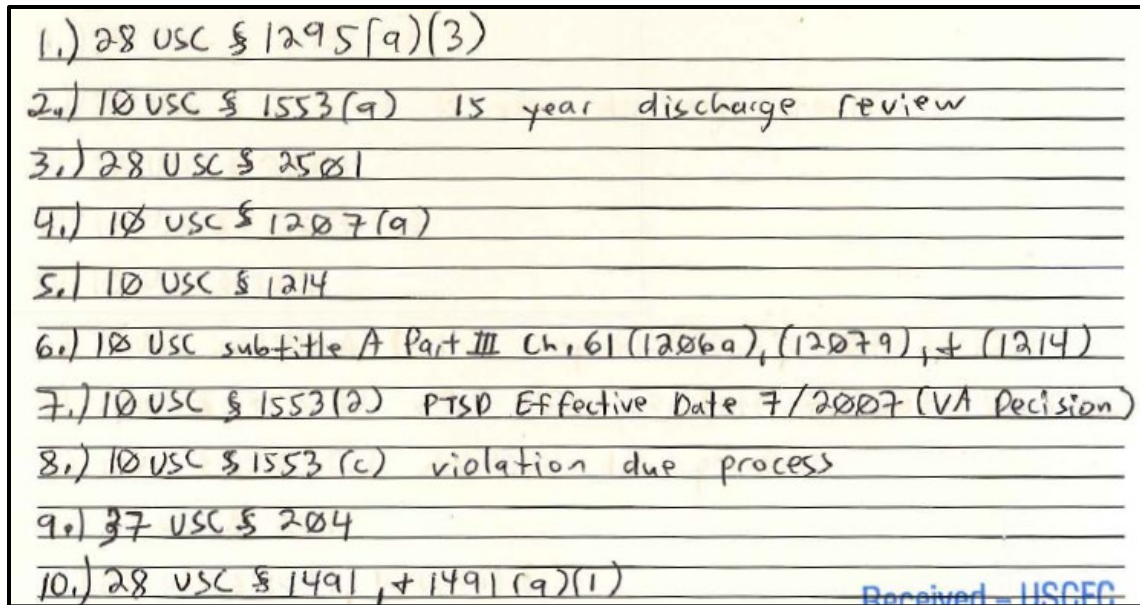 1.) 28 USC § 1295(a)(3)
2.) 10 USC § 1553(a) 15 year discharge review
3.) 28 USC § 2501
4.) 10 USC § 1207(a)
5.) 10 USC § 1214
6.) 10 USC subtitle A Part III Ch. 61 (1206a), (1207a), + (1214)
7.) 10 USC § 1553(2) PTSD Effective Date 7/2007 (VA Decision)
8.) 10 USC § 1553 (c) violation due process
9.) 37 USC § 204
10.) 28 USC § 1491, + 1491 (a)(1)
Received - USCFC